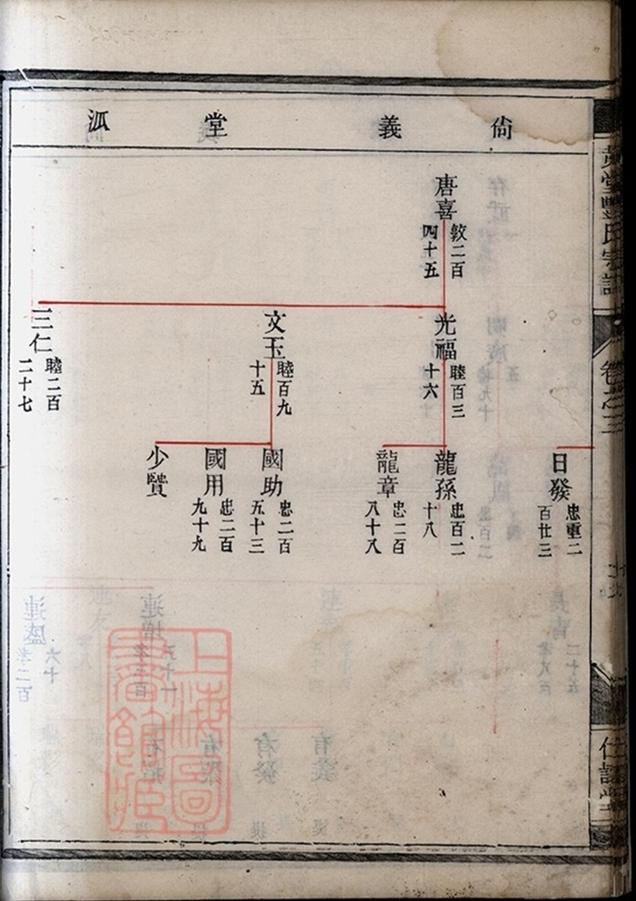 尙義堂派
唐喜
敦二百
四十五
光福
睦百三
十六
文玉
睦百九
十五
三仁
睦二百
二十七
日發
忠重二
百廿三
龍孫
忠百二
十八
龍章
忠二百
八十八
國助
忠二百
五十三
國用
忠二百
九十九
少賢
卷之三